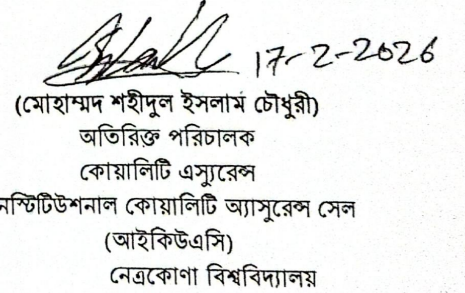 17-2-2026
(মোহাম্মদ শহীদুল ইসলাম চৌধুরী)
অতিরিক্ত পরিচালক
কোয়ালিটি এস্যুরেন্স
নস্টিটিউশনাল কোয়ালিটি অ্যাসুরেন্স সেল
(আইকিউএসি)
নেত্রকোণা বিশ্ববিদ্যালয়